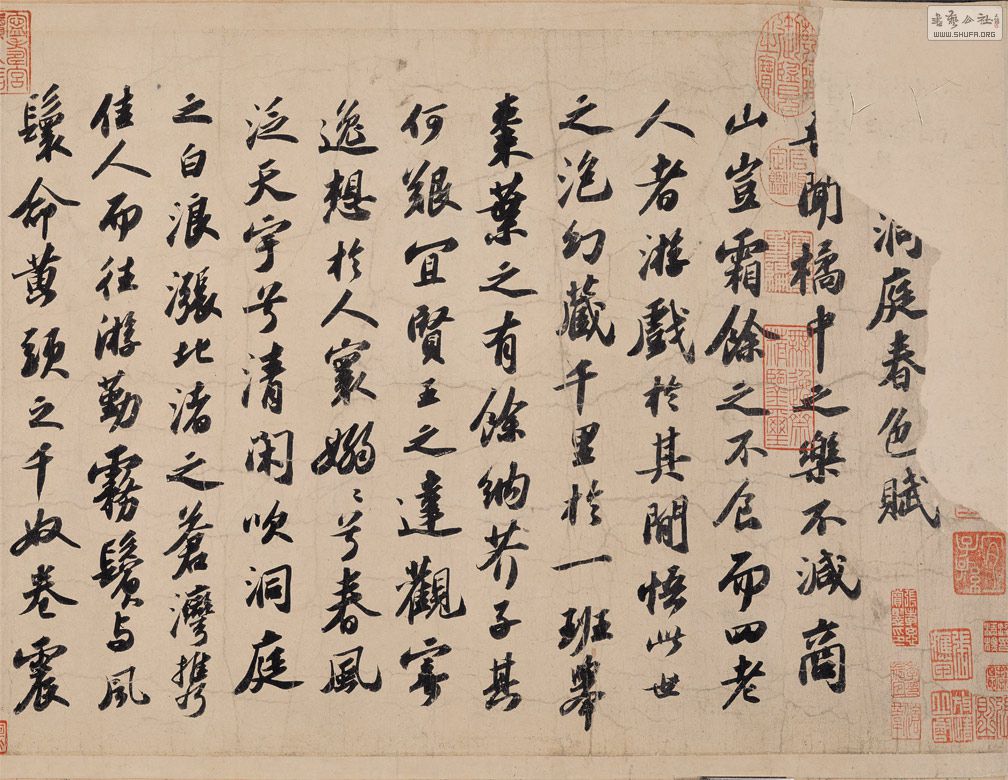 洞庭春色賦
聞橘中之樂不減商
山豈霜餘之不食而四老
人者游戲於其間悟此世
之泡幻藏千里於一班舉
棗葉之有餘納芥子其
何艱宜賢王之達觀寄
逸想於人寰嫋〻兮春風
泛天宇兮清閑吹洞庭
之白浪漲北渚之蒼灣攜
佳人而往游勤霧鬢与風
鬟命黃頭之千奴卷震
無逸齋精鑒璽
宜子孫
書藝公社
WWW.SHUFA.ORG